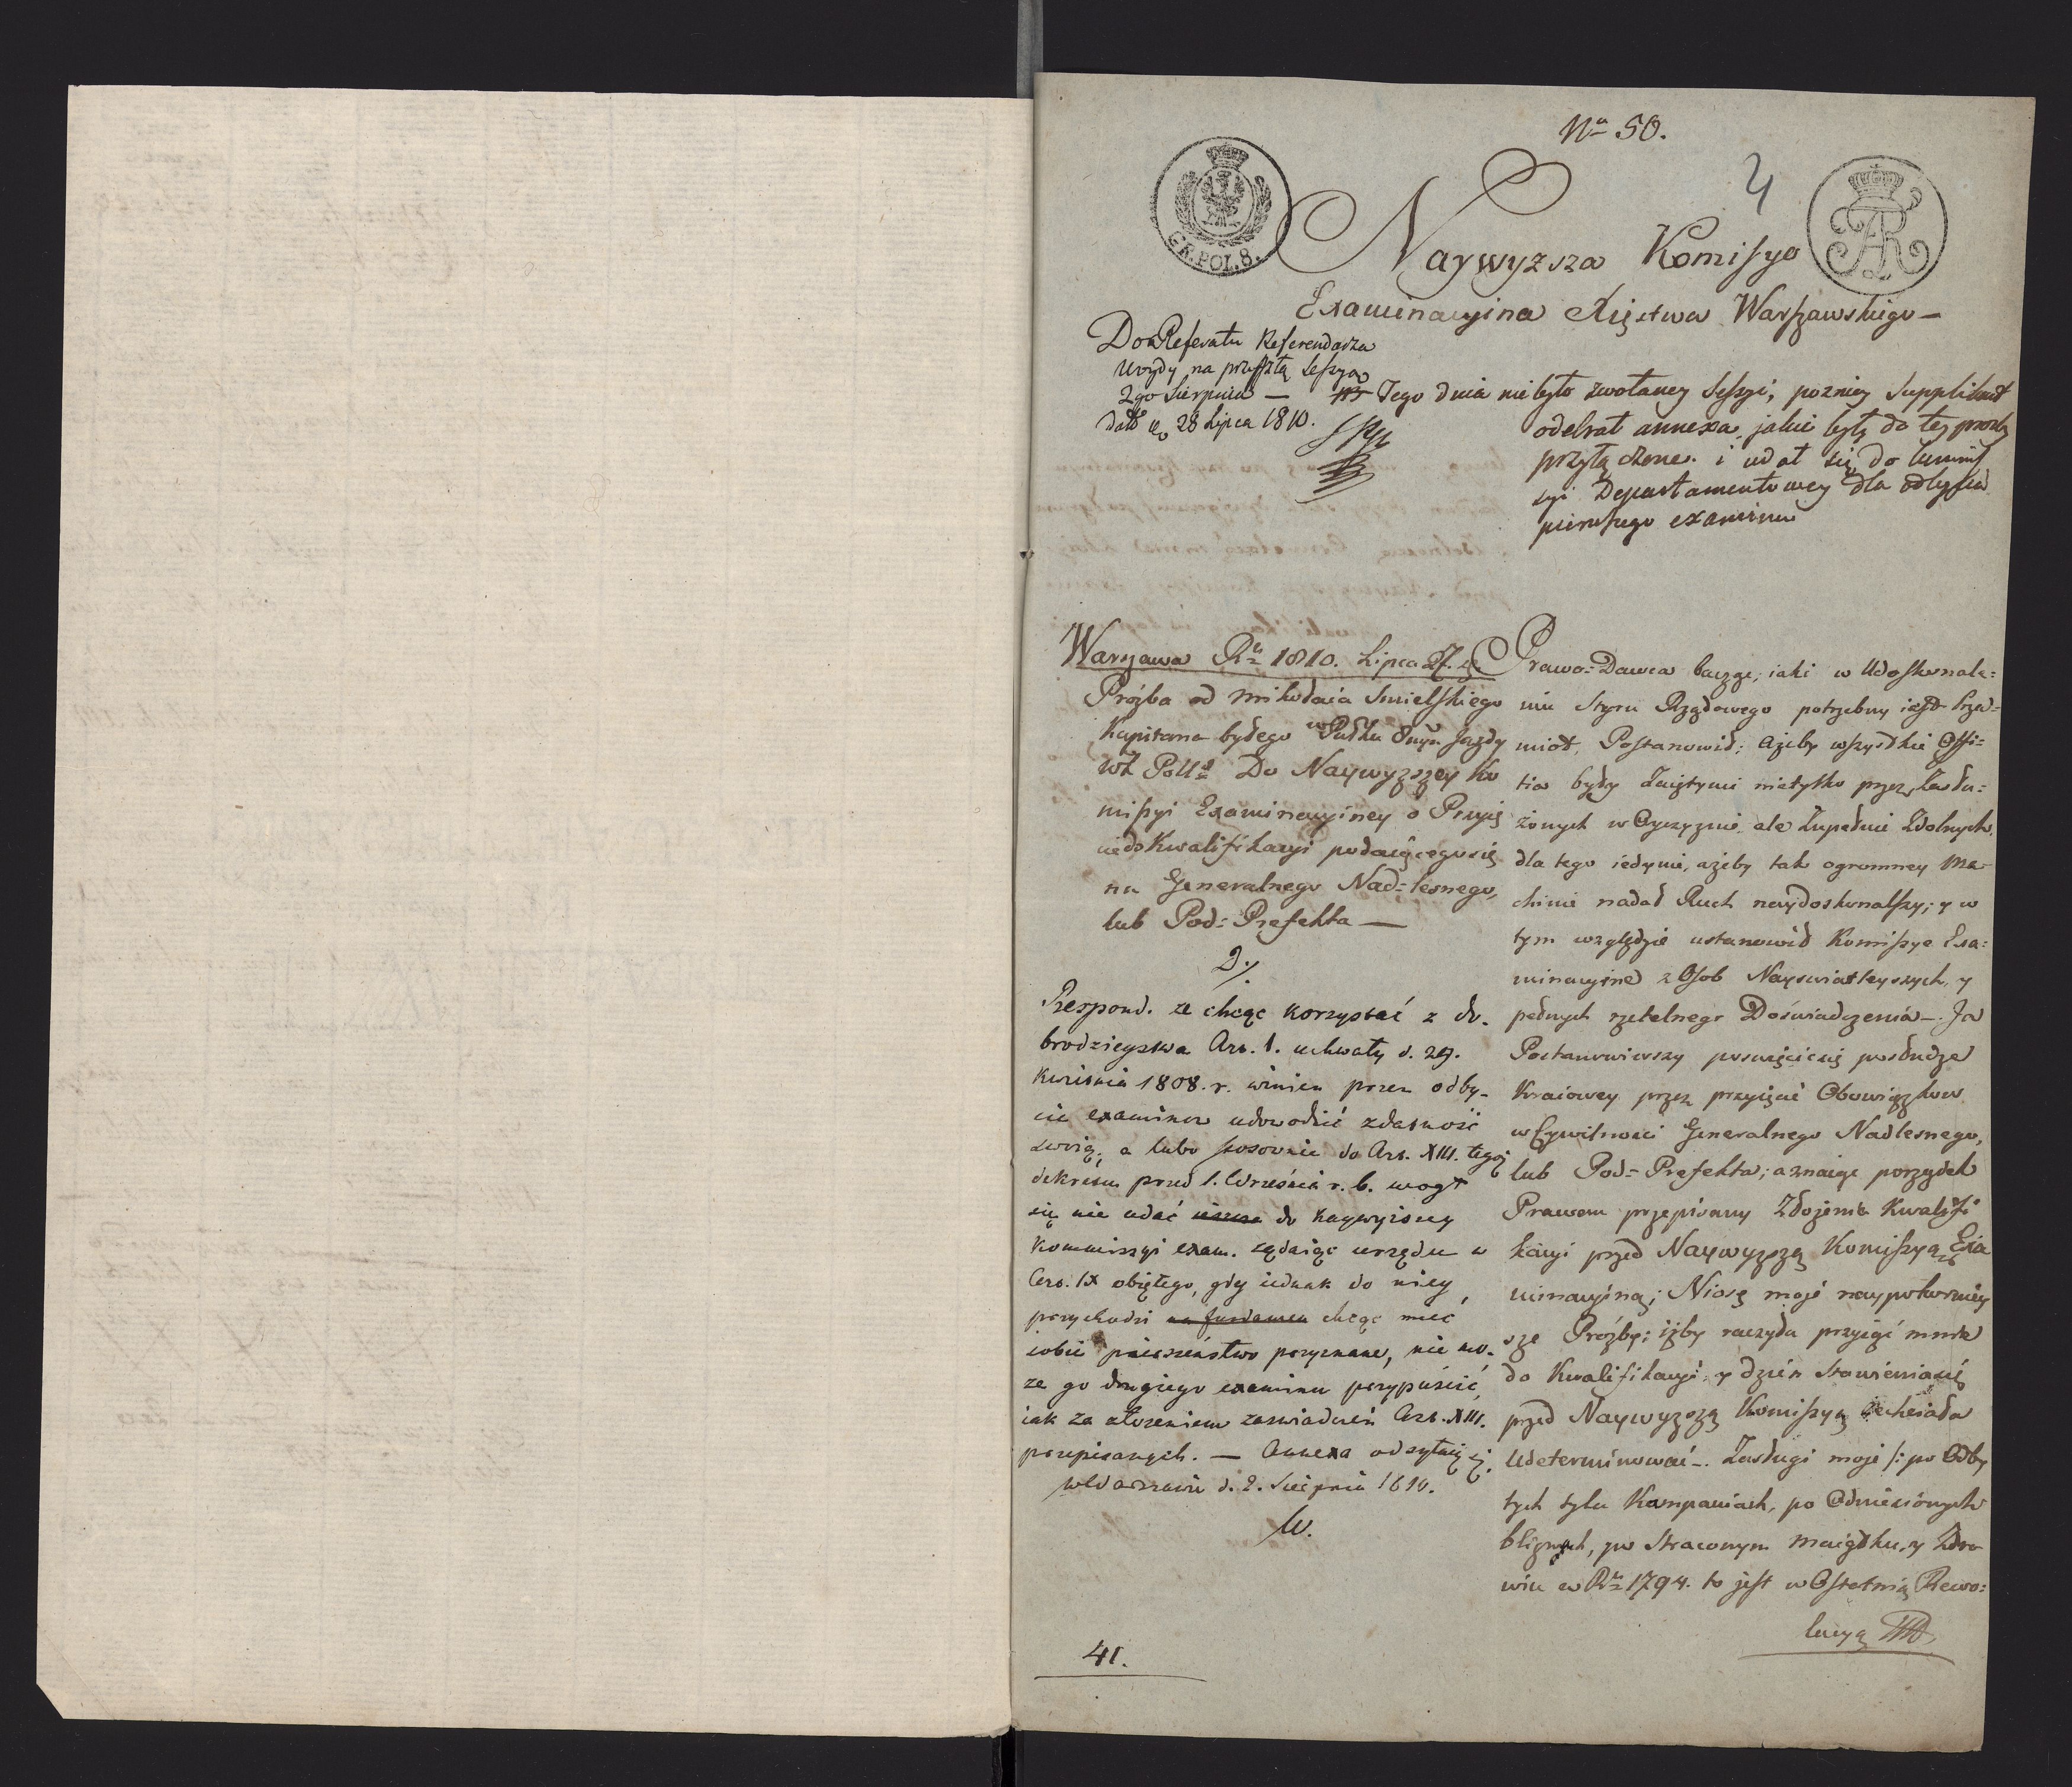 Nro 50.
4
GR. POL. 8.
Naywyższa Komisya
Examinacyina Xięstwa Warszawskiego —
Do Referatu Referendarza
na przyszłą Sessyą
2go Sierpnia —
28 Lipca 1810.
Tego dnia nie było zwołaney Sessyi, pozniey Supplikant
odebrał annexa, jakie były do tey prozby
przyłączone. i udał się do Commis
syi Departamentowey dla odbycia
pierwszego examinu
Warszawa Ru 1810. Lipca 27.
Próżba od Mikołaia Smielskiego
Kapitana byłego w Pułku 8mym Jazdy
Do Naywyższey Ko
missyi Examinacyiney o Przyię
cie do Kwalifikacyi podaiącego się
na Generalnego Nad=lesnego,
lub Pod=Prefekta —
2./.
Respond. że chcąc korzystać z do-
brodzieystwa Art. 1. uchwały d. 29.
Kwietnia 1808. r. winien przez odby-
cie examinu udowodnić zdatność
swoią, a lubo stosownie do Art. XIII. tegoż
dekretu przed 1. Września r. b. mogł
się nie udać do naywyższey
Kommissyi exam. żądaiąc urzędu w
Art. IX obiętego, gdy iednak do niey
przychodzi na fundamen chcąc mieć
sobie pierszeństwo przyznane, nie mo-
że go drugiego examinu przypuścić
iak za złożeniem zaświadczeń Art. XIII.
przepisanych. — Annexa odsyłaią się.
w Warszawie d. 2. Sierpnia 1810.
W.
41.
Prawo=Dawca bacząc, iaki w Udoskonale=
niu Steru Rządowego potrzebny iest Przed=
miot, Postanowił; ażeby wszystkie Offi=
cia były Zaiętymi nietylko przez Zasłu=
żonych w Oyczyznie, ale Zupełnie Zdolnych.
dla tego iedynie, ażeby tak ogromney Ma-
chinie nadał Ruch naydoskonalszy; y w
tym względzie ustanowił Komissye Exa=
minacyine z Osob Nayswiatleyszych, y
pełnych rzetelnego Doświadczenia —. Ja
Postanowiwszy poswięcić się posłudze
Kraiowey przez przyięcie Obowiązkow
w Cywilności Generalnego Nadlesnego,
lub Pod=Prefekta; a znaiąc porządek
Prawem przepisany Złożenia Kwalifi
kacyi przed Naywyższą Komissyą Exa
minacyiną; Niosę moje naypokorniey
sze Prożby; iżby raczyła przyiąć mnie
do Kwalifikacyi, y dzień Stawienia się
przed Naywyższą Komissyą zechciała
Udeterminować —. Zasługi moje /: po Odby
tych tylu Kampaniach, po Odniesionych
bliznach, po Straconym Maiątku, y Zdro
wiu w Ru 1794. to jest w Ostatnią Rewo=
lucyą